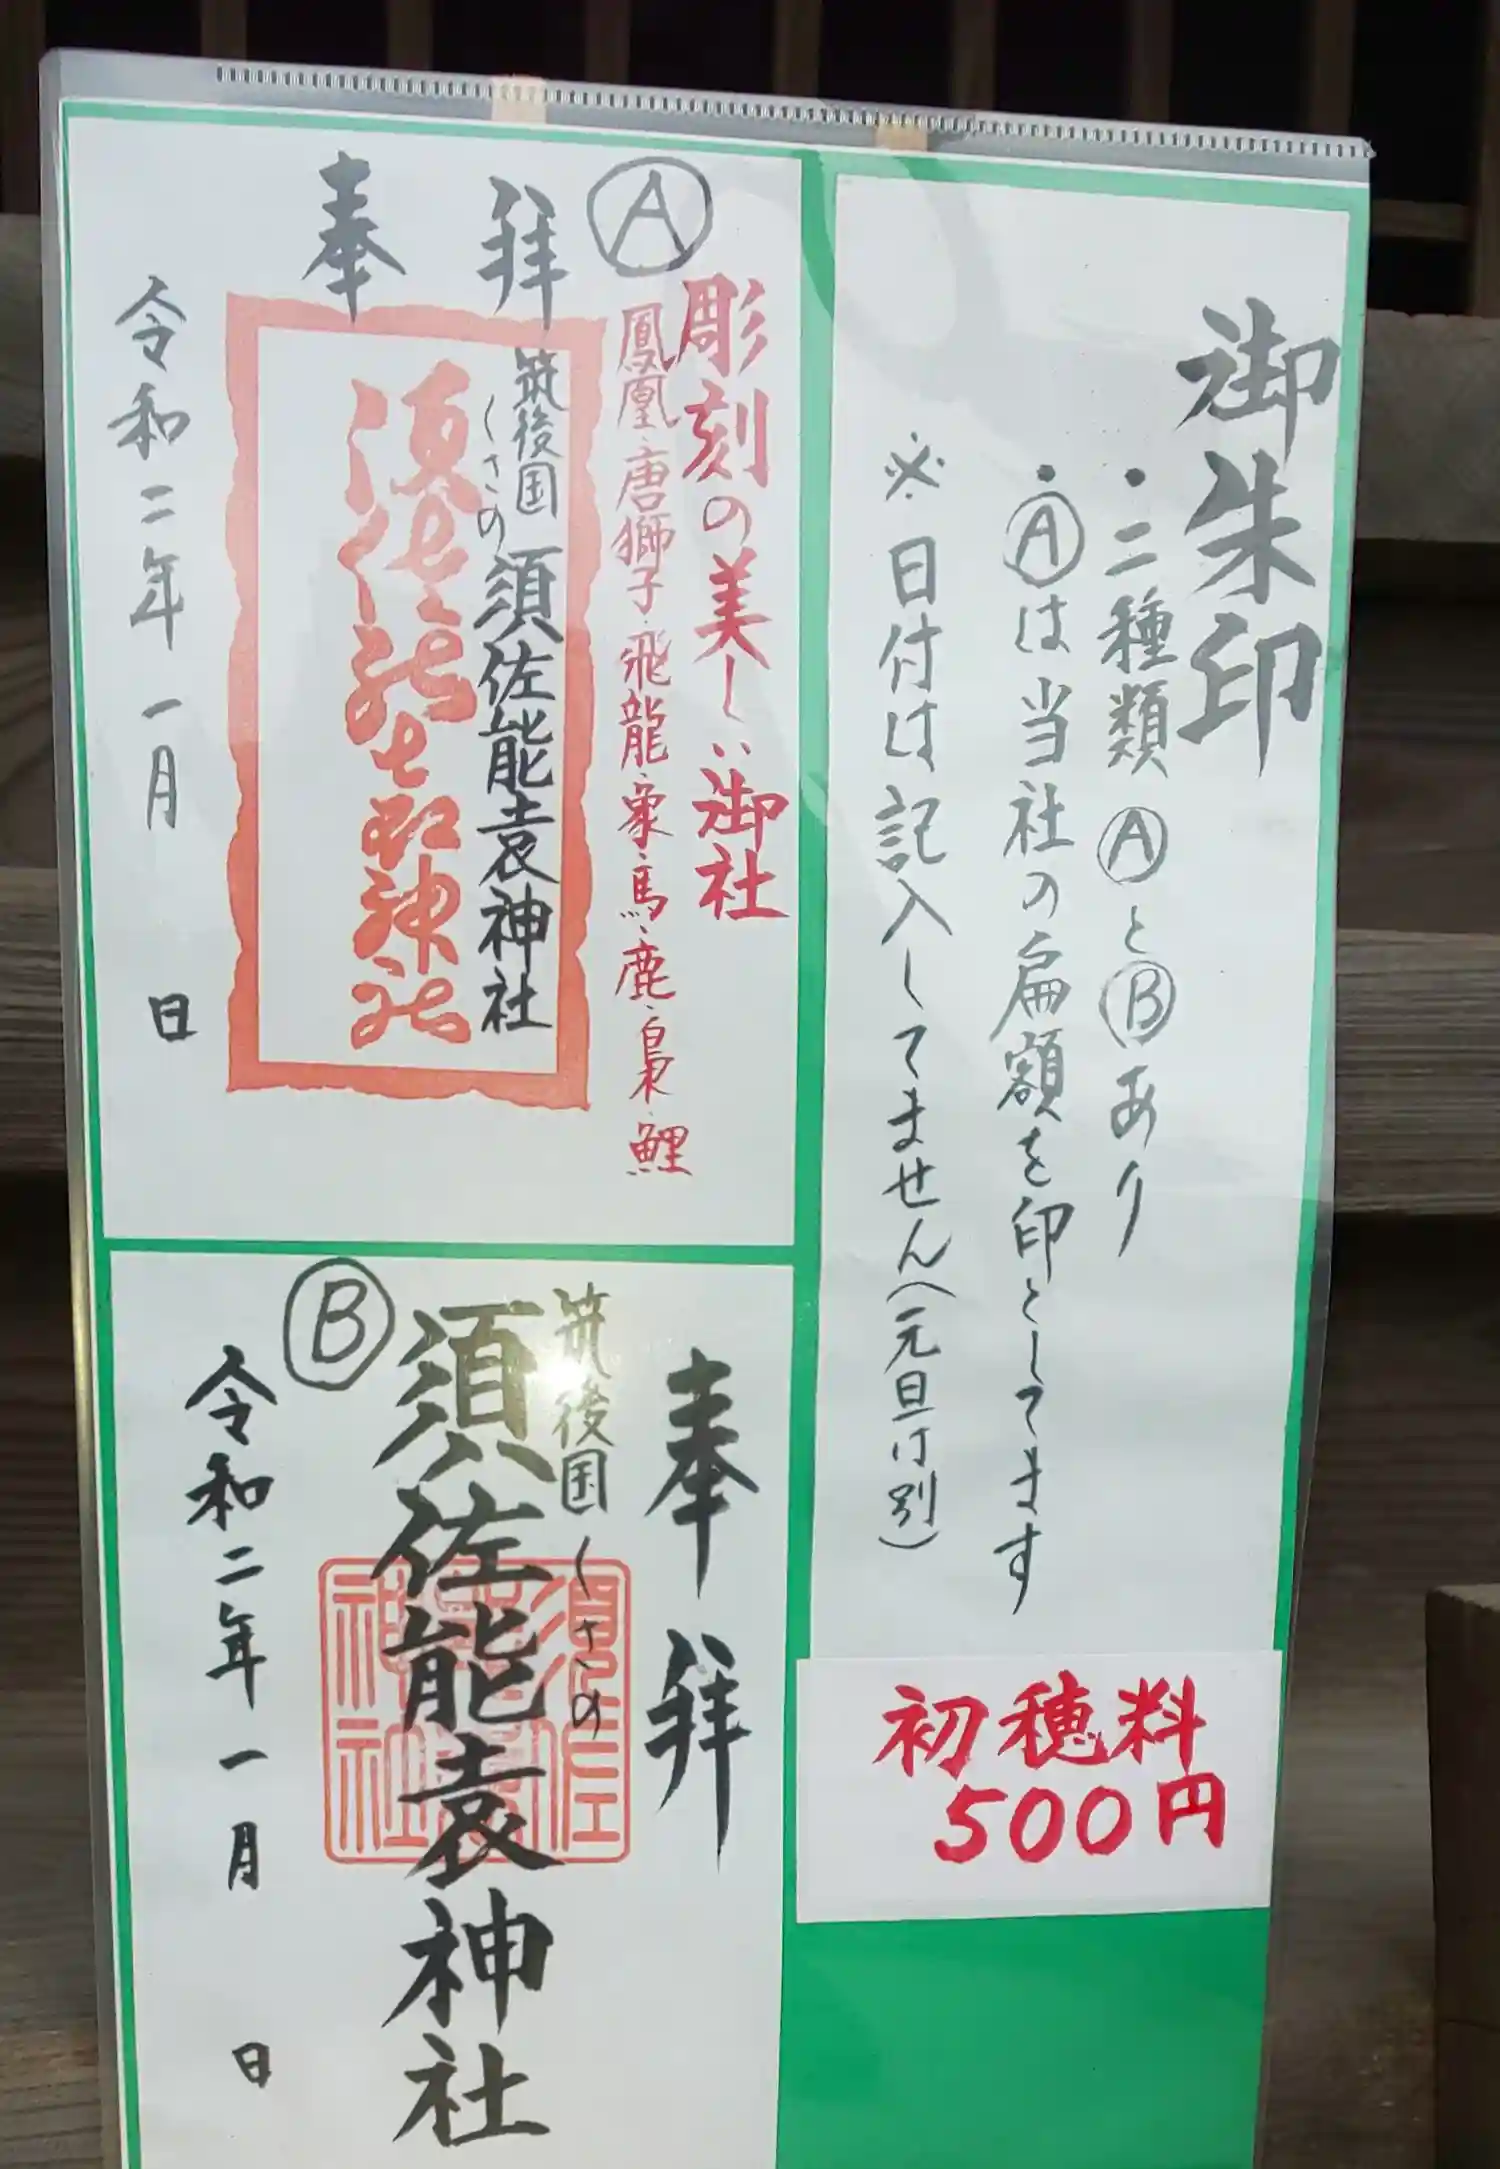 御朱印
・二種類ⒶとⒷあり
・Ⓐは当社の扁額を印としてます
※日付は記入してません(元旦付別)
初穂料
500円
Ⓐ
彫刻の美しい御社
鳳凰・唐獅子・飛龍・象・馬・鹿・梟・鯉
奉拝
筑後国
くさの
須佐能袁神社
令和二年一月 日
Ⓑ
奉拝
筑後国くさの
須佐能袁神社
令和二年一月 日